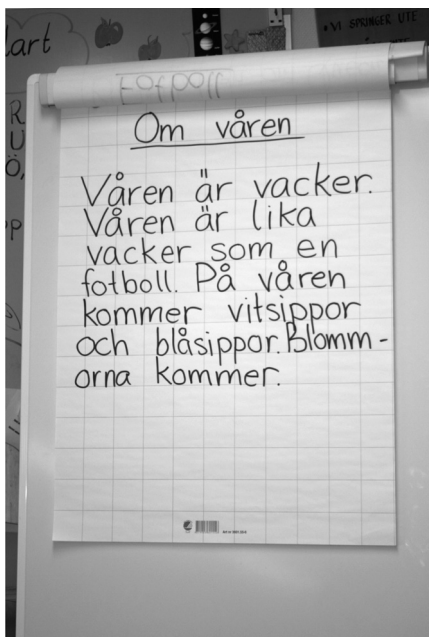 lart
VI SPRINGER UTE
R
U
Ö,
Fotboll
Om våren
Våren är vacker.
Våren är lika
vacker som en
fotboll. På våren
kommer vitsippor
och blåsippor. Blomm-
orna kommer.